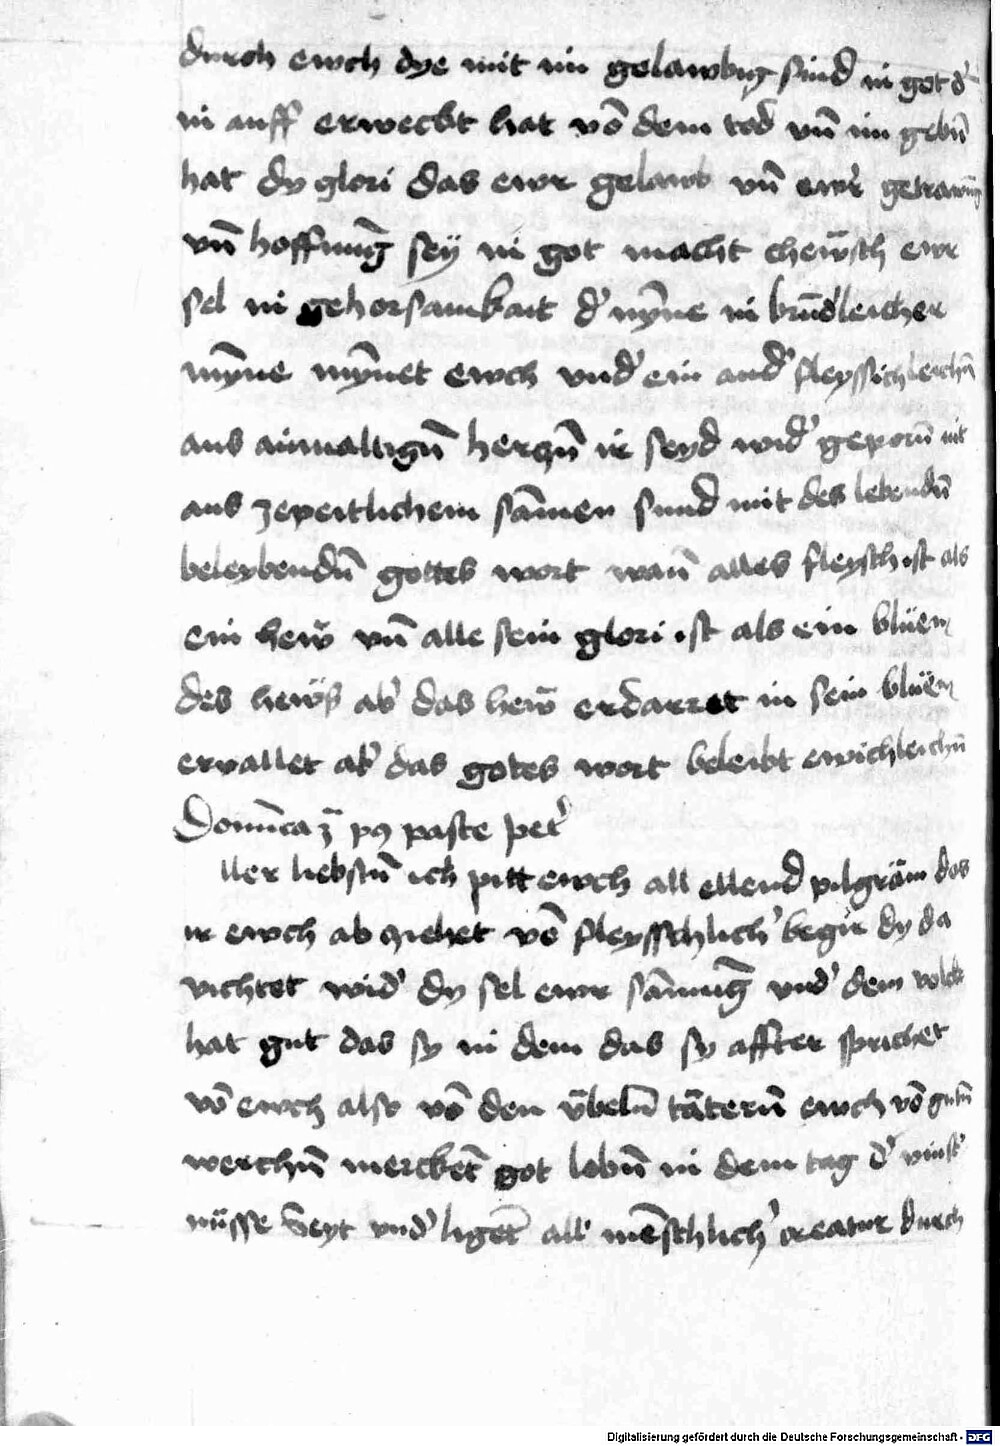 durch ewch dye mit im gelawbig sind in got d'
in auff erweckt hat vō dem tod vn̄ im gebn̄
hat dy glori das ewr gelawb vn̄ ewr getrawūg
vn̄ hoffnūg sey in got macht chewsch ewr
sel in gehorsamkait d' mȳne in brūdleicher
mȳne mȳnet ewch vnd' ein and' fleyssichleichn̄
aus ainualtign̄ herczn̄ ir seyd wid' geporn̄ nit
aus zepeitlichem sāmen sund mit des lebendn̄
beleybendn̄ gottes wort wan̄ alles fleysch ist als
ein hew vn̄ alle sein glori ist als ein blüem
des hews ab' das hew erdarret in sein blüem
ervallet ab' das gotes wort beleibt ewichleichn̄
Domīca 3ᵃ p9 pasce pet'
ller liebstn̄ ich pitt ewch all ellend pilgräm das
ir ewch ab ziehet vō fleysschlich' begir dy da
vichtet wid' dy sel ewr sāmnūg vnd' dem volck
hat gut das sy in dem das sy affter sprichet
vō ewch also vō den vbeln̄ tätern̄ ewch vō gutn̄
werchn̄ merckēt got lobn̄ in dem tag d' vinst'
nüsse Seyt vnd' ligēt all' mēschlich' creatur durch
Digitalisierung gefördert durch die Deutsche Forschungsgemeinschaft - DFG